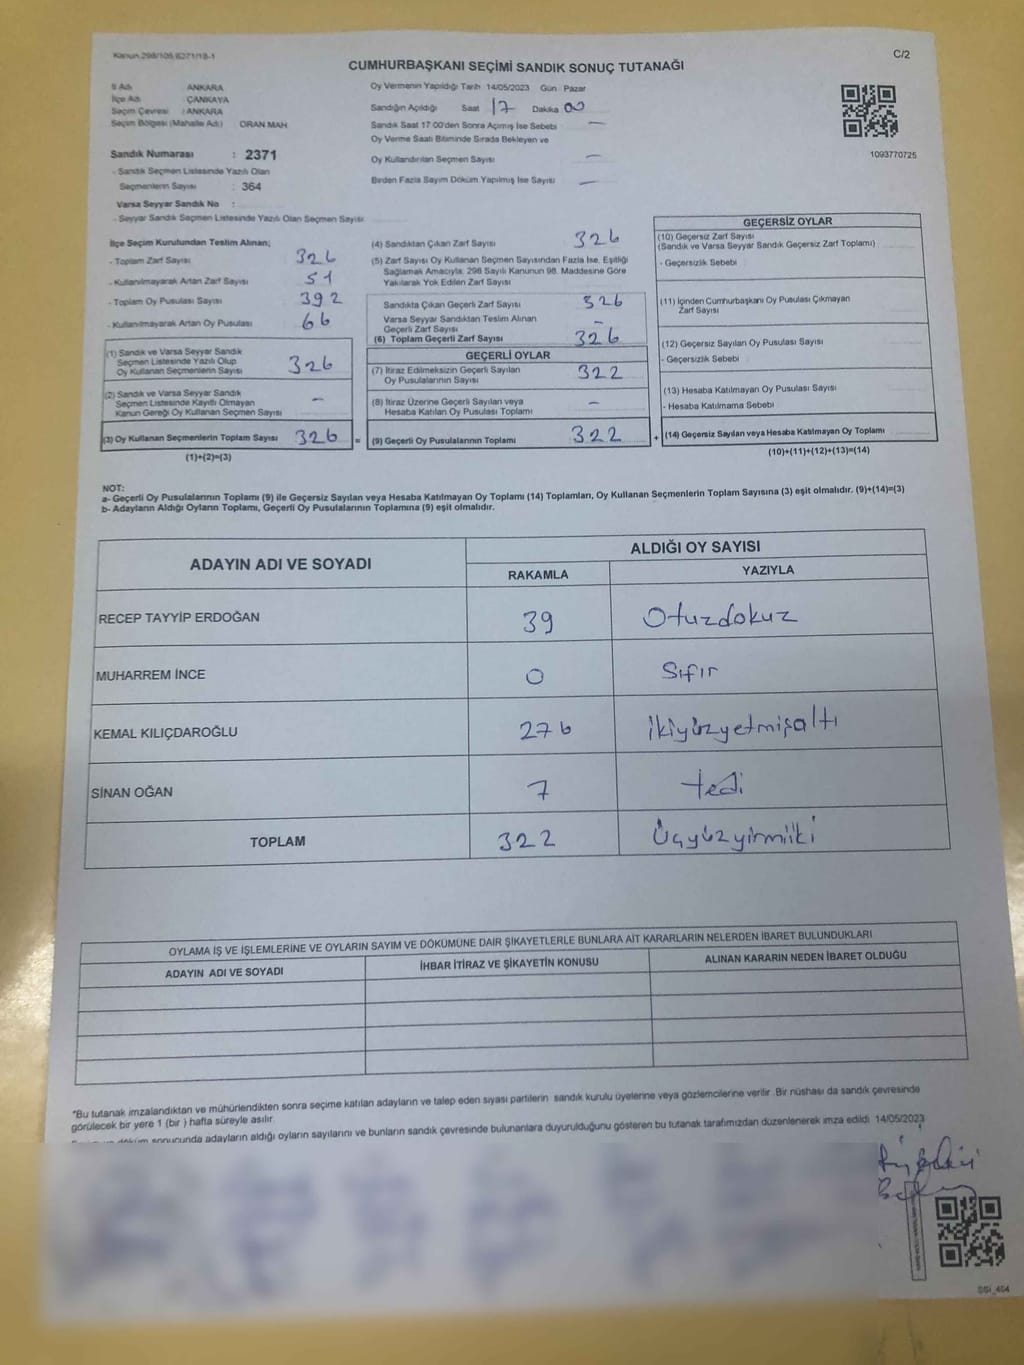 Kanun 298/105,6271/18-1
C/2
CUMHURBAŞKANI SEÇİMİ SANDIK SONUÇ TUTANAĞI
İl Adı : ANKARA
İlçe Adı : ÇANKAYA
Seçim Çevresi : ANKARA
Seçim Bölgesi (Mahalle Adı) ORAN MAH
Sandık Numarası : 2371
- Sandık Seçmen Listesinde Yazılı Olan
Seçmenlerin Sayısı : 364
Varsa Seyyar Sandık No :
- Seyyar Sandık Seçmen Listesinde Yazılı Olan Seçmen Sayısı
Oy Vermenin Yapıldığı Tarih 14/05/2023 Gün Pazar
Sandığın Açıldığı Saat 17 Dakika 00
Sandık Saat 17:00'den Sonra Açımış İse Sebebi —
Oy Verme Saati Bitiminde Sırada Bekleyen ve
Oy Kullandırılan Seçmen Sayısı —
Birden Fazla Sayım Döküm Yapılmış İse Sayısı —
1093770725
İlçe Seçim Kurulundan Teslim Alınan;
- Toplam Zarf Sayısı 326
- Kullanılmayarak Artan Zarf Sayısı 51
- Toplam Oy Pusulası Sayısı 392
- Kullanılmayarak Artan Oy Pusulası 66
(1) Sandık ve Varsa Seyyar Sandık
Seçmen Listesinde Yazılı Olup
Oy Kullanan Seçmenlerin Sayısı 326
(2) Sandık ve Varsa Seyyar Sandık
Seçmen Listesinde Kayıtlı Olmayan
Kanun Gereği Oy Kullanan Seçmen Sayısı —
(3) Oy Kullanan Seçmenlerin Toplam Sayısı 326 =
(1)+(2)=(3)
(4) Sandıktan Çıkan Zarf Sayısı 326
(5) Zarf Sayısı Oy Kullanan Seçmen Sayısından Fazla İse, Eşitliği
Sağlamak Amacıyla; 298 Sayılı Kanunun 98. Maddesine Göre
Yakılarak Yok Edilen Zarf Sayısı
Sandıkta Çıkan Geçerli Zarf Sayısı 326
Varsa Seyyar Sandıktan Teslim Alınan
Geçerli Zarf Sayısı —
(6) Toplam Geçerli Zarf Sayısı 326
GEÇERLİ OYLAR
(7) İtiraz Edilmeksizin Geçerli Sayılan
Oy Pusulalarının Sayısı 322
(8) İtiraz Üzerine Geçerli Sayılan veya
Hesaba Katılan Oy Pusulası Toplamı —
(9) Geçerli Oy Pusulalarının Toplamı 322 +
GEÇERSİZ OYLAR
(10) Geçersiz Zarf Sayısı
(Sandık ve Varsa Seyyar Sandık Geçersiz Zarf Toplamı)
- Geçersizlik Sebebi
(11) İçinden Cumhurbaşkanı Oy Pusulası Çıkmayan
Zarf Sayısı
(12) Geçersiz Sayılan Oy Pusulası Sayısı
- Geçersizlik Sebebi
(13) Hesaba Katılmayan Oy Pusulası Sayısı
- Hesaba Katılmama Sebebi
(14) Geçersiz Sayılan veya Hesaba Katılmayan Oy Toplamı
(10)+(11)+(12)+(13)=(14)
NOT:
a- Geçerli Oy Pusulalarının Toplamı (9) ile Geçersiz Sayılan veya Hesaba Katılmayan Oy Toplamı (14) Toplamları, Oy Kullanan Seçmenlerin Toplam Sayısına (3) eşit olmalıdır. (9)+(14)=(3)
b- Adayların Aldığı Oyların Toplamı, Geçerli Oy Pusulalarının Toplamına (9) eşit olmalıdır.
ADAYIN ADI VE SOYADI
ALDIĞI OY SAYISI
RAKAMLA YAZIYLA
RECEP TAYYİP ERDOĞAN 39 Otuzdokuz
MUHARREM İNCE 0 Sıfır
KEMAL KILIÇDAROĞLU 276 İkiyüzyetmişaltı
SİNAN OĞAN 7 Yedi
TOPLAM 322 Üçyüzyirmiiki
OYLAMA İŞ VE İŞLEMLERİNE VE OYLARIN SAYIM VE DÖKÜMÜNE DAİR ŞİKAYETLERLE BUNLARA AİT KARARLARIN NELERDEN İBARET BULUNDUKLARI
ADAYIN ADI VE SOYADI İHBAR İTİRAZ VE ŞİKAYETİN KONUSU ALINAN KARARIN NEDEN İBARET OLDUĞU
*Bu tutanak imzalandıktan ve mühürlendikten sonra seçime katılan adayların ve talep eden siyasi partilerin sandık kurulu üyelerine veya gözlemcilerine verilir. Bir nüshası da sandık çevresinde
görülecek bir yere 1 (bir ) hafta süreyle asılır.
döküm sonucunda adayların aldığı oyların sayılarını ve bunların sandık çevresinde bulunanlara duyurulduğunu gösteren bu tutanak tarafımızdan düzenlenerek imza edildi. 14/05/2023